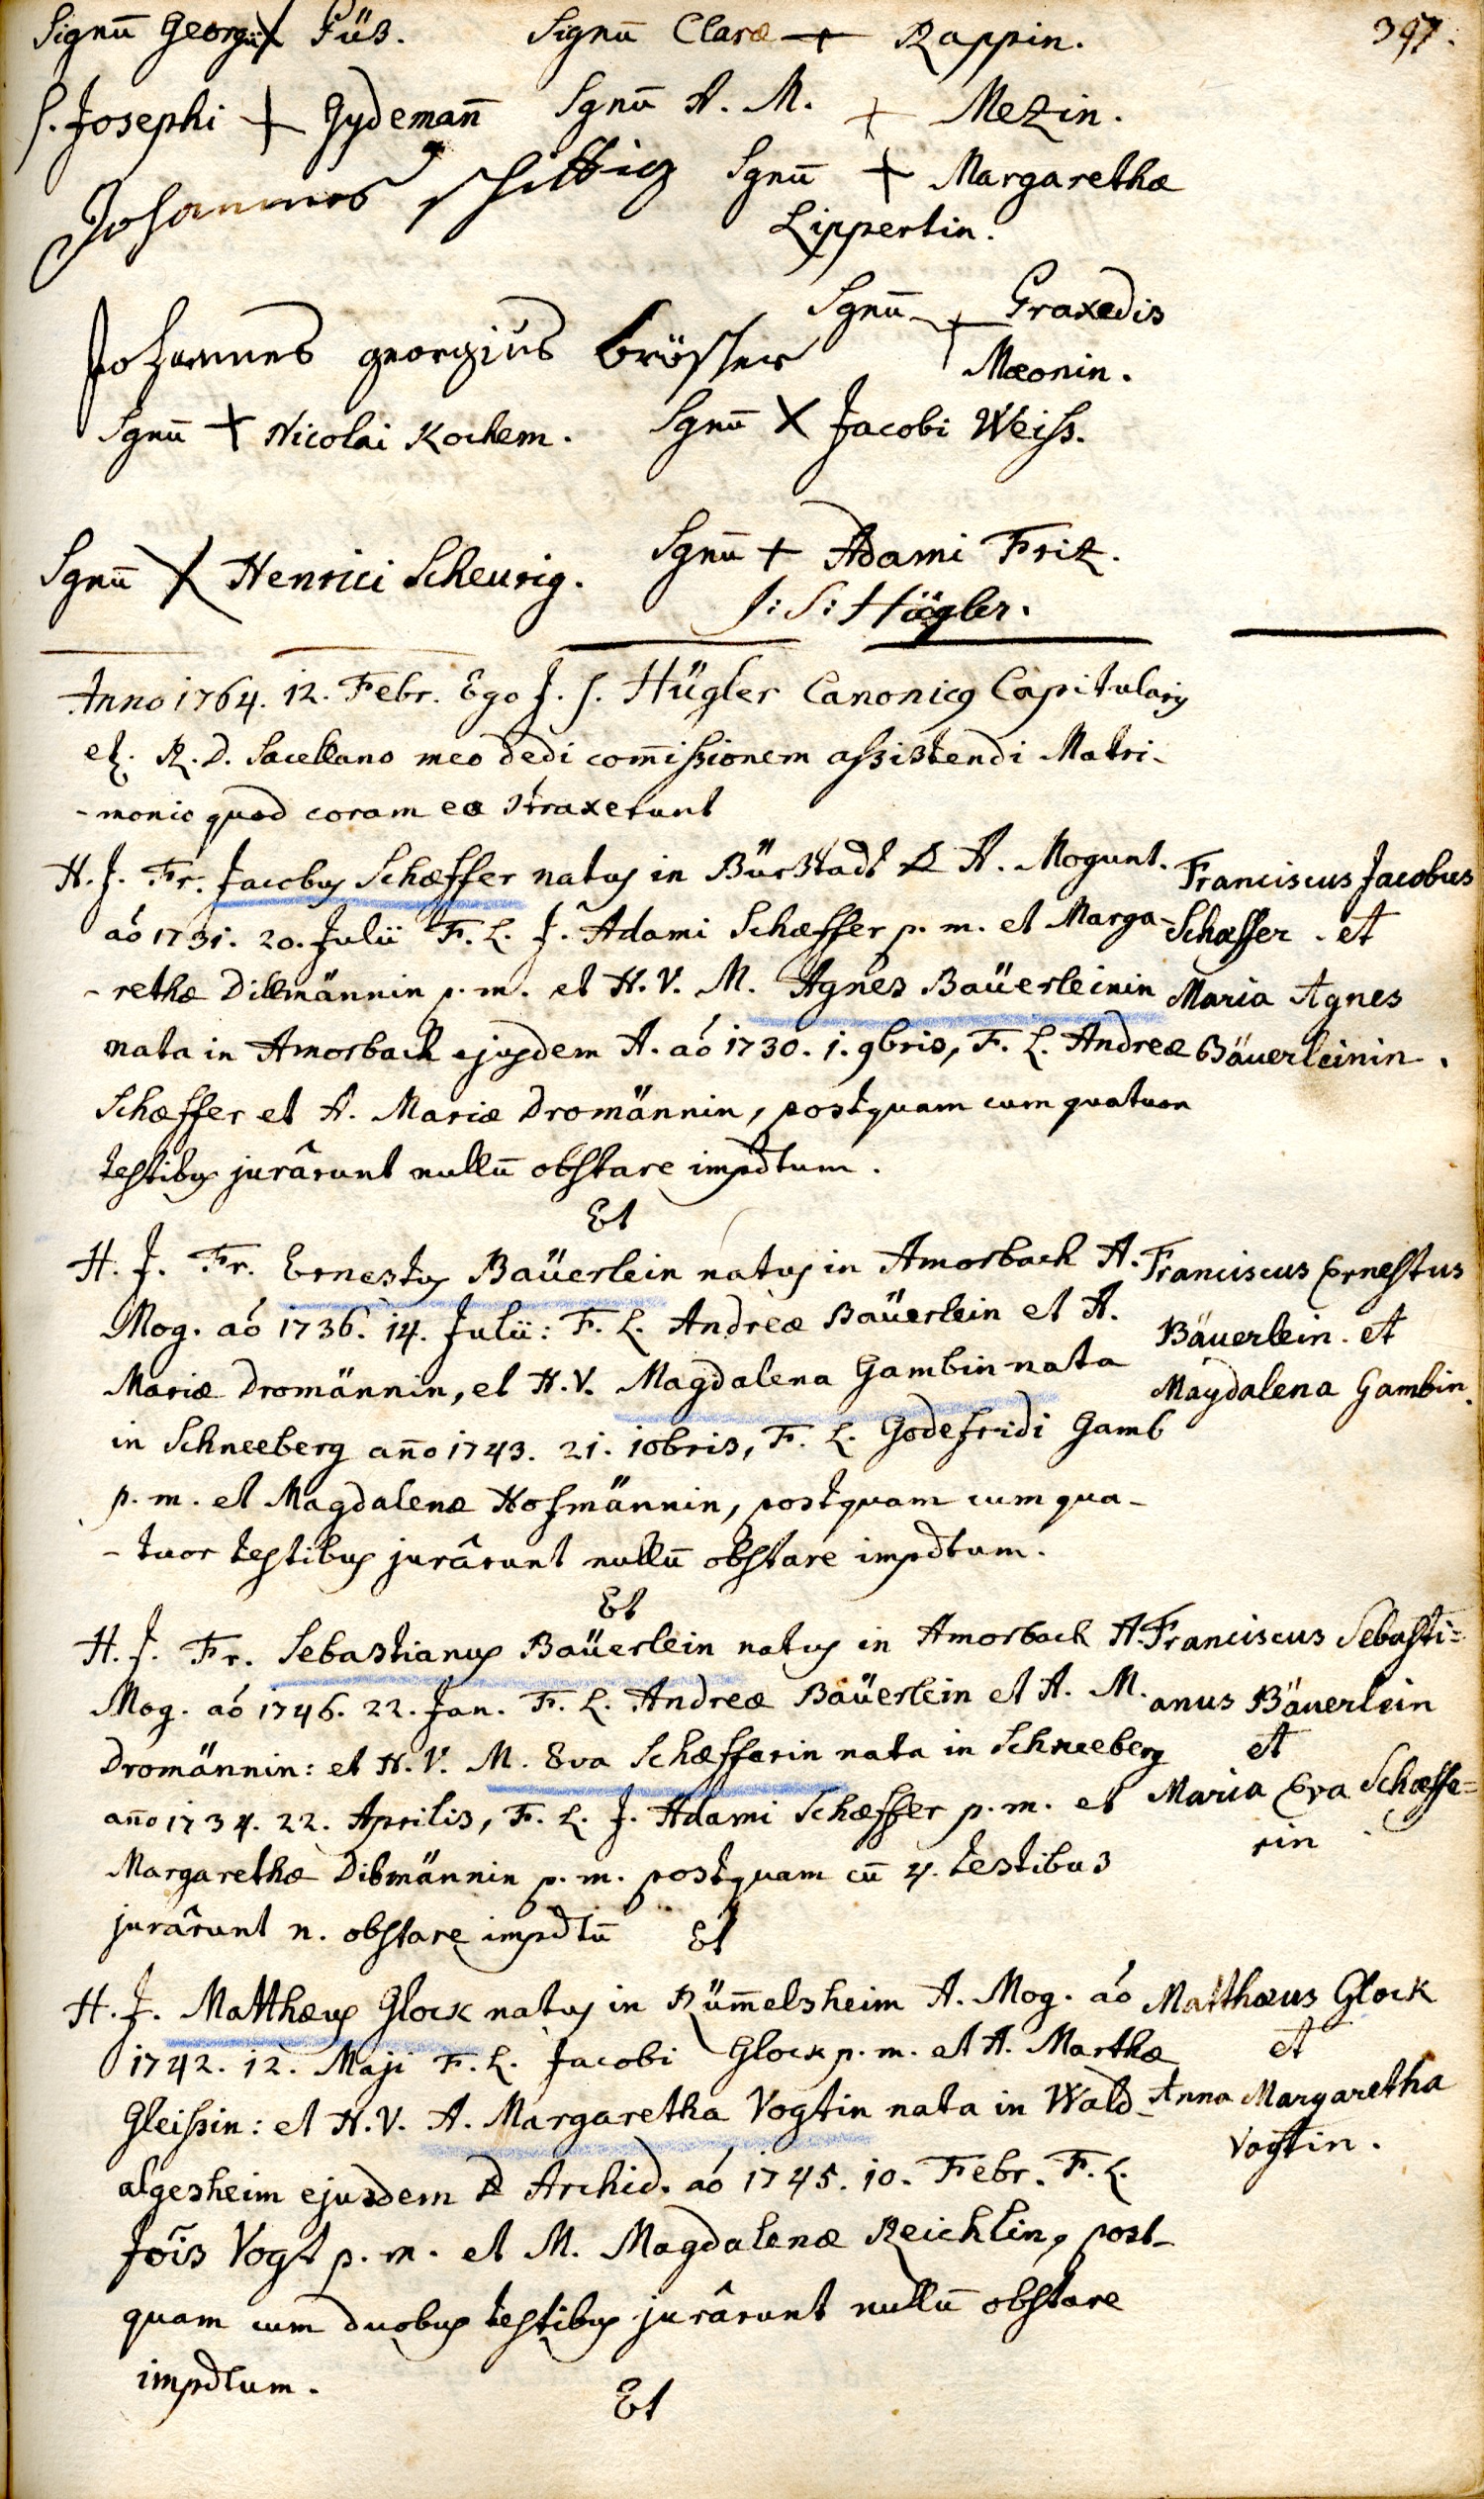 397.
Signū Georgii + Füß. Signū Claræ + Rappin.
S. Josephi + Gydemañ Sgnū A. M. + Mezin.
Johannes Schittig Sgnū + Margarethæ
Lippertin.
Sgnū + Praxedis
Johannes georgius Brösser Mæonin.
Sgnū + Nicolai Kochem. Sgnū X Jacobi Weiss.
Sgnū X Henrici Scheurig. Sgnū + Adami Friz.
J: S: Hügler.
Anno 1764. 12. Febr. Ego J. S. Hügler Canonicq Capitularis
et. R. D. Sacellano meo dedi com̄issionem assistendi Matri-
-monio quod coram eo 9traxerunt
H. J. Fr. Jacobus Schæffer natus in Bürstadt A. Mogunt.
aó 1731. 20. Julii F. L. J. Adami Schæffer p. m. et Marga-
-rethæ Dillmännin p. m. et H. V. M. Agnes Baüerleinin
nata in Amorbach ejusdem A. aó 1730. 1. 9bris, F. L. Andreæ
Schæffer et A. Mariæ Dromännin, postquam cum quatuor
testibus jurârunt nullū obstare impdtum.
Franciscus Jacobus
Schæffer. et
Maria Agnes
Bäuerleinin.
Et
H. J. Fr. Ernestus Baüerlein natus in Amorbach A.
Mog. aó 1736. 14. Julii: F. L. Andreæ Baüerlein et A.
Mariæ Dromännin, et H. V. Magdalena Gambin nata
in Schneeberg año 1743. 21. 10bris, F. L. Godefridi Gamb
p. m. et Magdalenæ Hofmännin, postquam cum qua-
-tuor testibus jurârunt nullū obstare impdtum.
Franciscus Ernestus
Bäuerlein. et
Magdalena Gambin.
Et
H. J. Fr. Sebastianus Baüerlein natus in Amorbach A.
Mog. aó 1746. 22. Jan. F. L. Andreæ Baüerlein et A. M.
Dromännin: et H. V. M. Eva Schæfferin nata in Schneeberg
año 1734. 22. Aprilis, F. L. J. Adami Schæffer p. m. et
Margarethæ Dibmännin p. m. postquam cū 4. testibus
jurârunt n. obstare impdtū Et
Franciscus Sebasti=
anus Bäuerlein
et
Maria Eva Schæffe=
rin.
H. J. Matthæus Glock natus in Rüm̄elsheim A. Mog. aó
1742. 12. Maji F. L. Jacobi Glock p. m. et A. Marthæ
Gleissin: et H. V. A. Margaretha Vogtin nata in Wald-
algesheim ejusdem Archid. aó 1745. 10. Febr. F. L.
Jõis Vogt p. m. et M. Magdalenæ Reichlin, post-
quam cum duobus testibus jurârunt nullū obstare
impdtum.
Matthæus Glock
et
Anna Margaretha
Vogtin.
Et